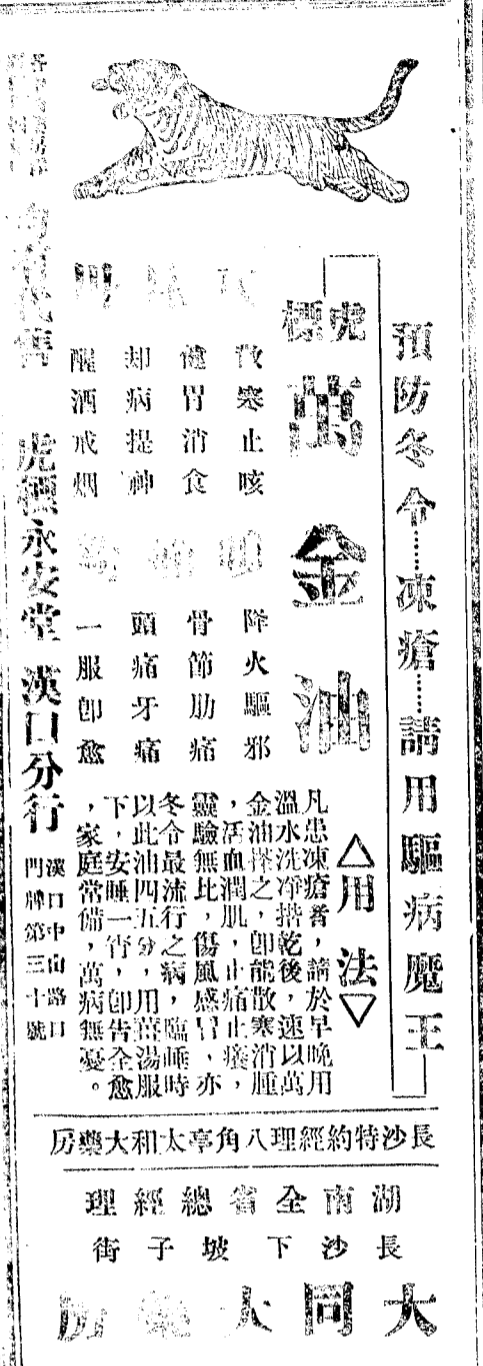 預防冬令……凍瘡……請用驅病魔王
虎標
萬金油
散寒止咳
健胃消食
却病提神
醒酒戒烟
降火驅邪
骨節肋痛
頭痛牙痛
一服卽愈
△用法▽
凡患凍瘡者，請於早晚用
溫水洗凈揩乾後，速以萬
金油搽之，卽能散寒消腫
，活血潤肌，止痛止癢，
靈驗無比，傷風感冒，亦
冬令最流行之病，臨睡時
以此油四五分，用薑湯服
下，安睡一宵，卽告全愈
，家庭常備，萬病無憂。
均有代售
虎標永安堂 漢口分行
漢口中山路口
門牌第三十號
長沙特約經理八角亭太和大藥房
湖南全省總經理
長沙下坡子街
大同大藥房